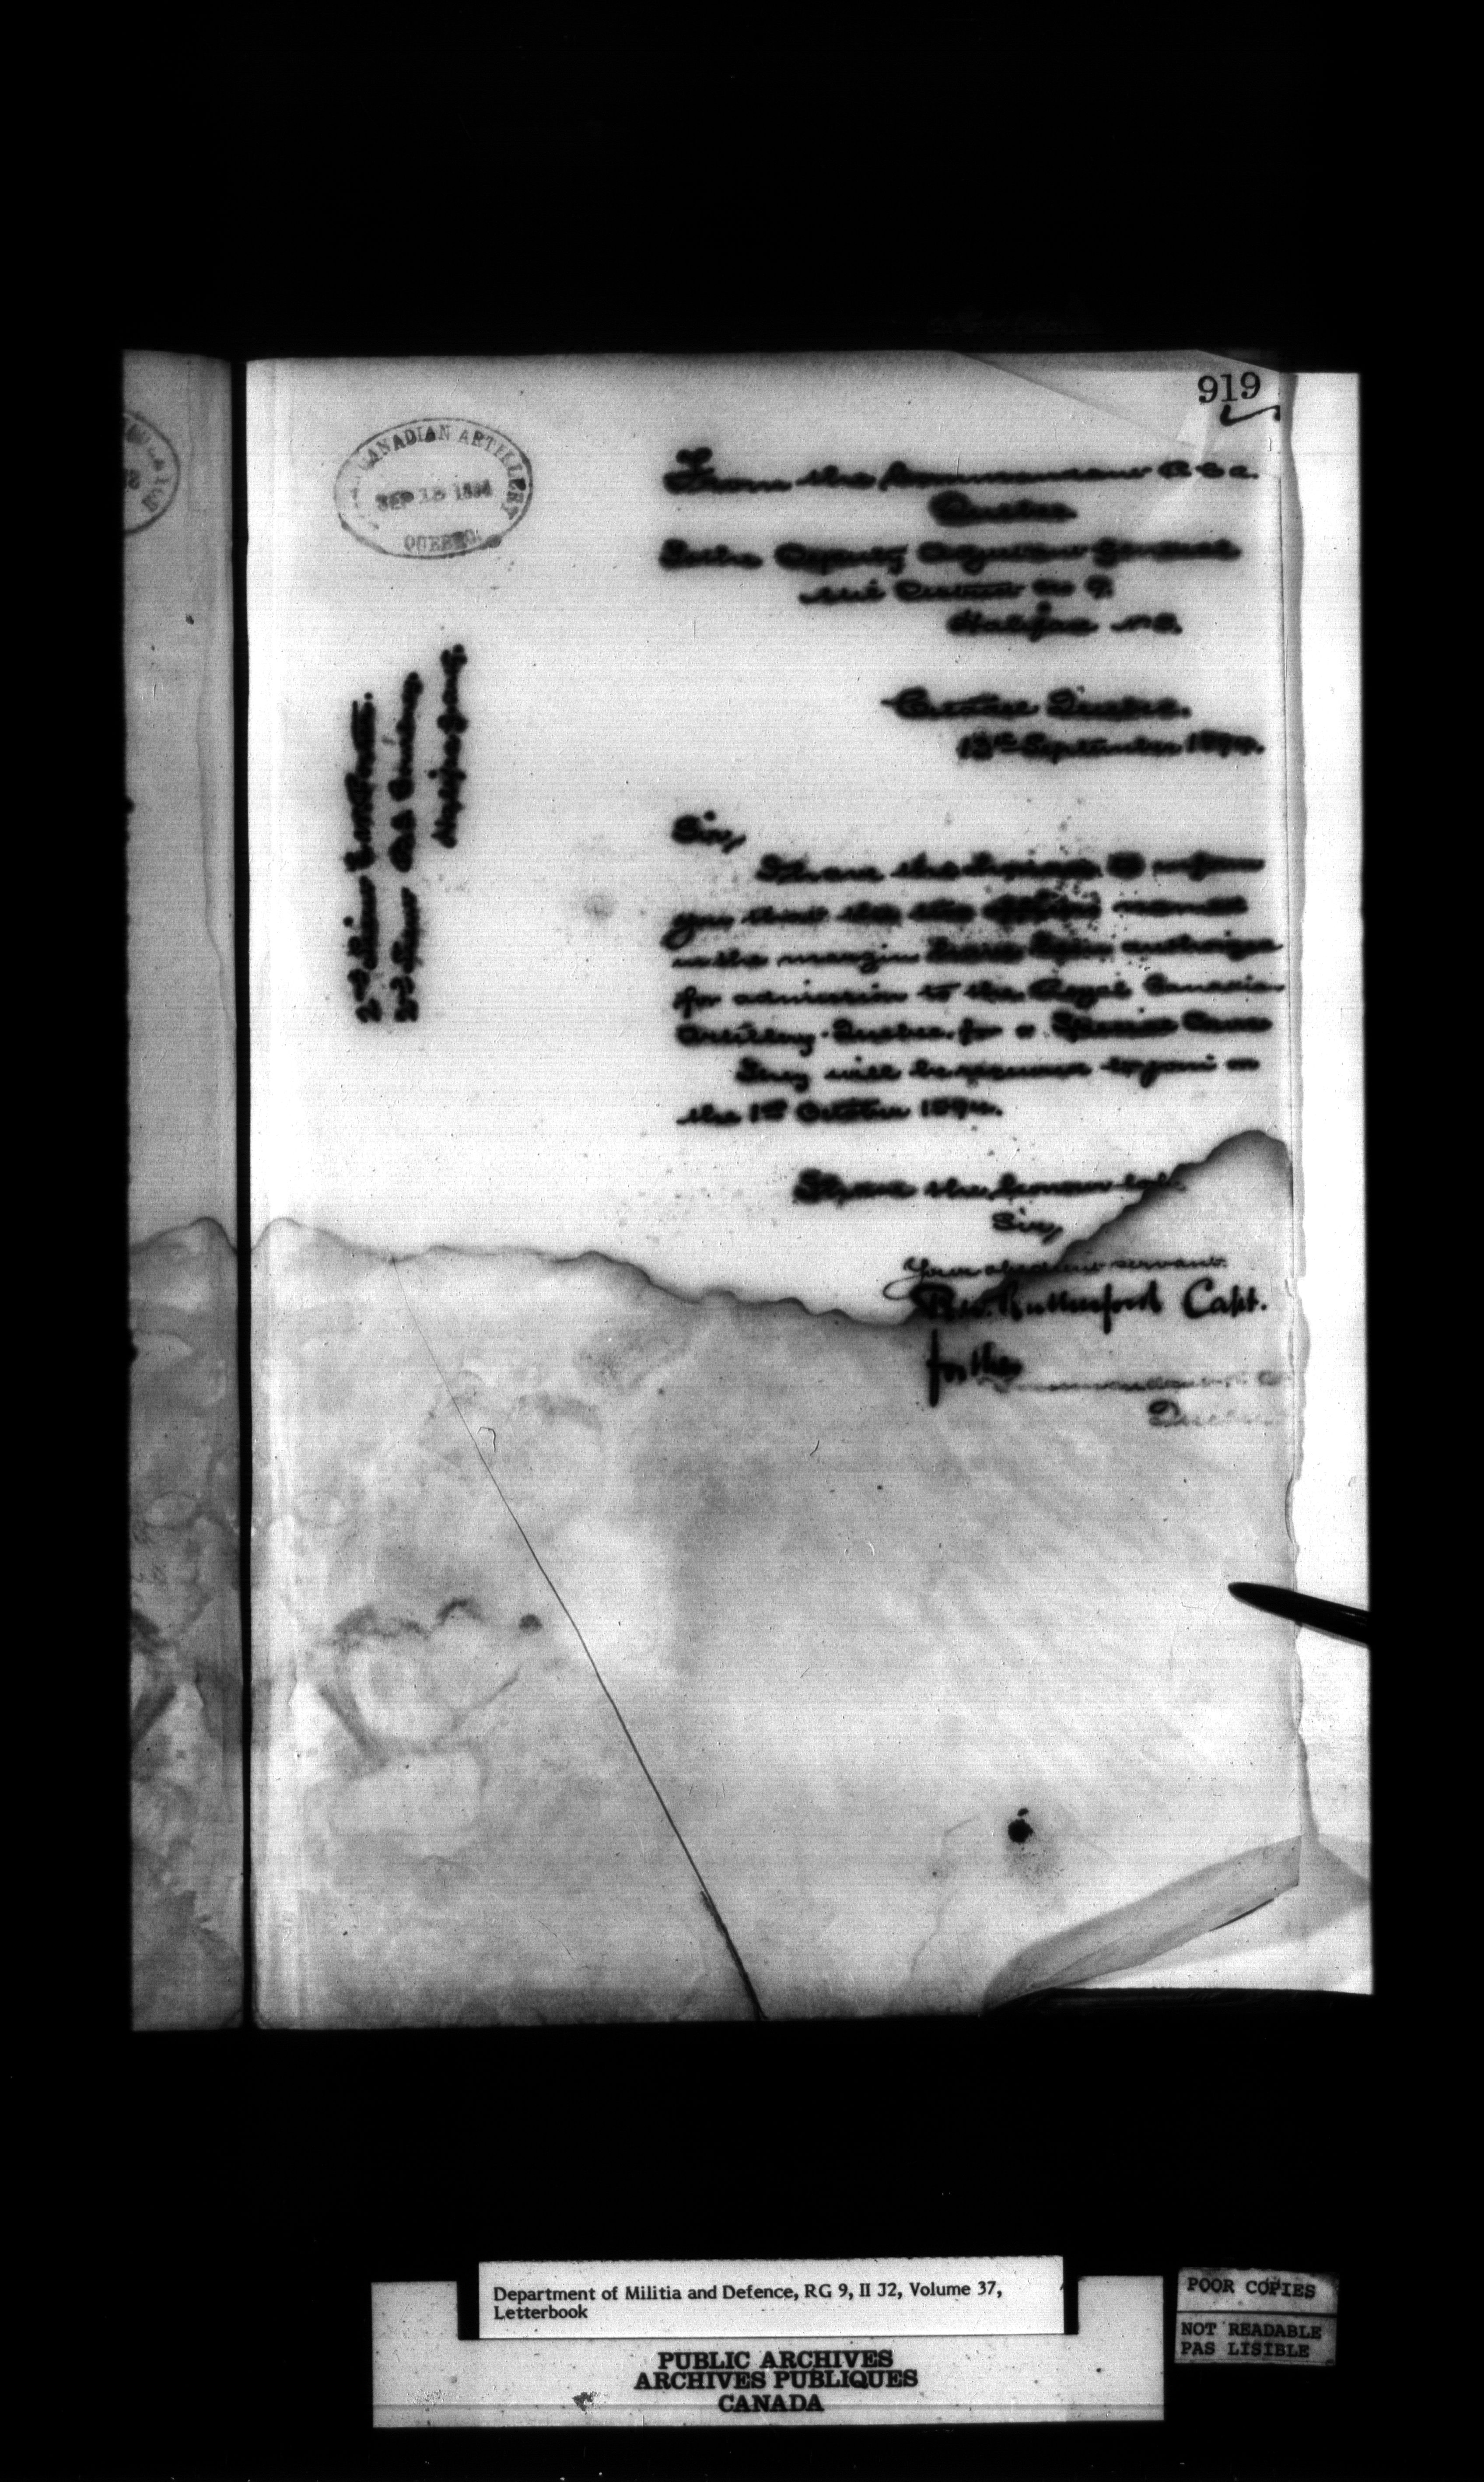 919
CANADIAN ARTILLERY
SEP 13 1894
QUEBEC
From the Commandant R.C.A.
Quebec
To the Deputy Adjutant General
Mil District No 9.
Halifax N.S.
Citadel Quebec.
13th September 1894.
2nd Lieut
2nd Lieut
Halifax
Sir,
I have the honor to inform
you that the two officers named
in the margin have been
for admission to the Royal Canadian
Artillery Quebec for a Special Course
They will be required to join on
the 1st October 1894.
I have the honour to be
Sir,
Your obedient servant.
Rutherford Capt.
for the
Commandant R.C.
Quebec
Department of Militia and Defence, RG 9, II J2, Volume 37,
Letterbook
PUBLIC ARCHIVES
ARCHIVES PUBLIQUES
CANADA
POOR COPIES
NOT READABLE
PAS LISIBLE